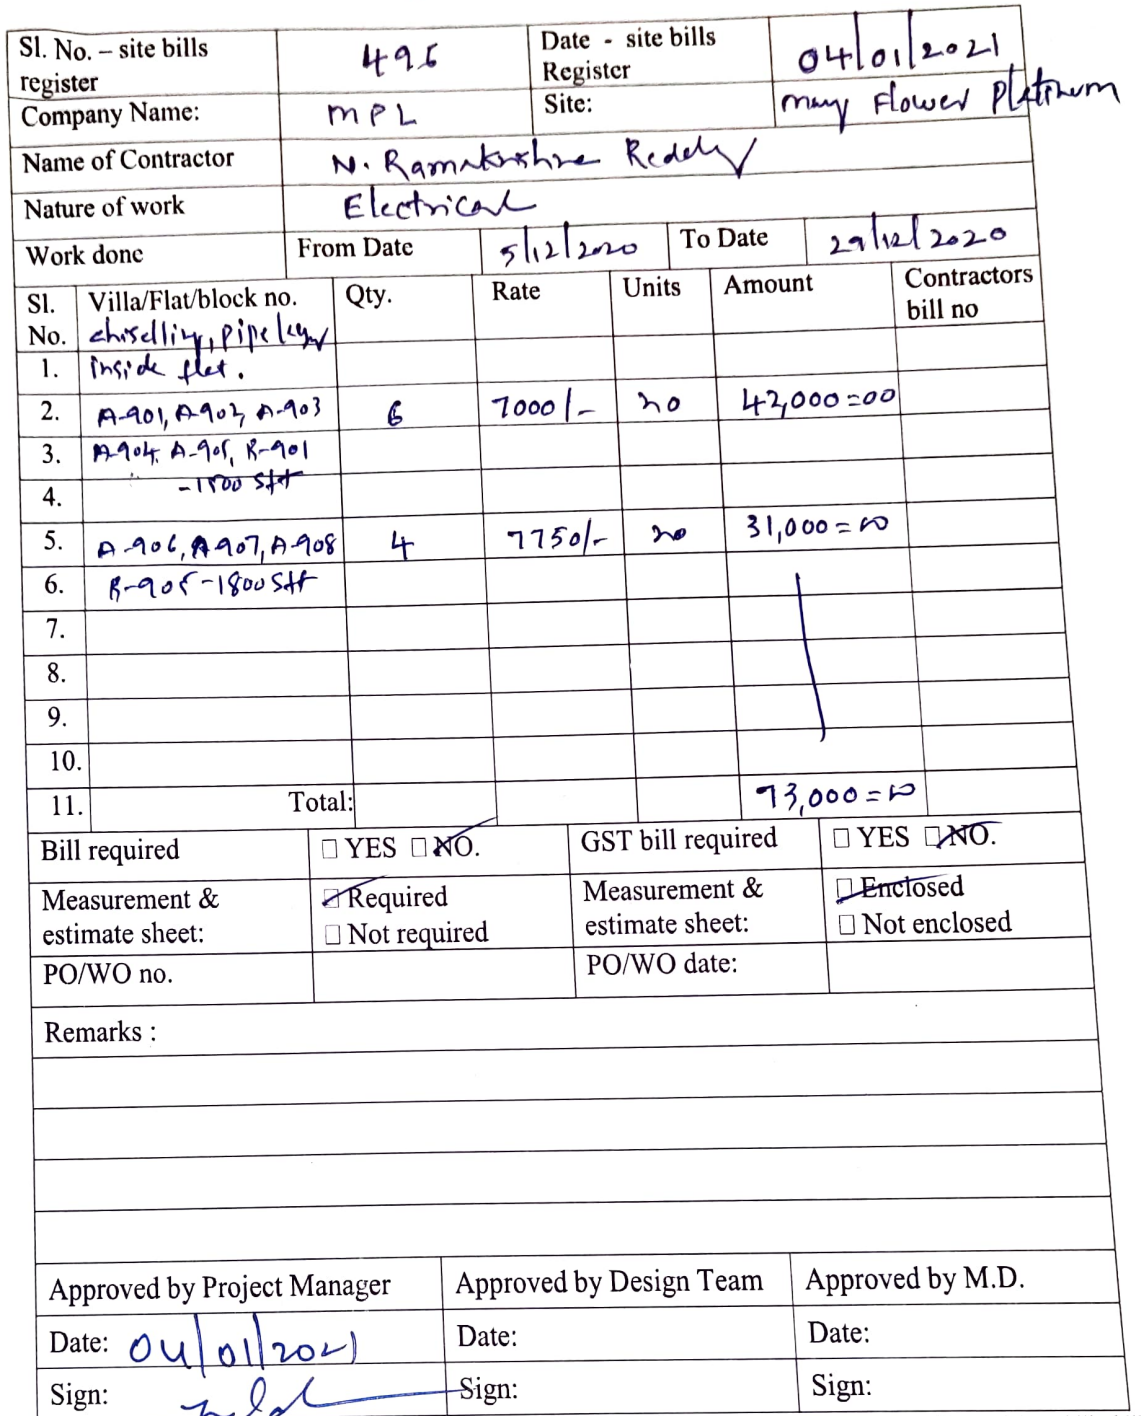 Sl. No. – site bills register 496 Date - site bills Register 04/01/2021
Company Name: MPL Site: may Flower Platinum
Name of Contractor N. Ramakrishna Reddy
Nature of work Electrical
Work done From Date 5/12/2020 To Date 29/12/2020
Sl. No. Villa/Flat/block no. Qty. Rate Units Amount Contractors bill no
chiselling, pipe
1. inside flat.
2. A-901, A-902, A-903 6 7000/- no 42,000=00
3. A-904, A-905, B-901
4. -1500 sft
5. A-906, A-907, A-908 4 7750/- no 31,000=00
6. B-905-1800 sft
7.
8.
9.
10.
11. Total: 73,000=00
Bill required □ YES □ NO. GST bill required □ YES □ NO.
Measurement & estimate sheet: □ Required □ Not required Measurement & estimate sheet: □ Enclosed □ Not enclosed
PO/WO no. PO/WO date:
Remarks :
Approved by Project Manager Approved by Design Team Approved by M.D.
Date: 04/01/2021 Date: Date:
Sign: Sign: Sign: